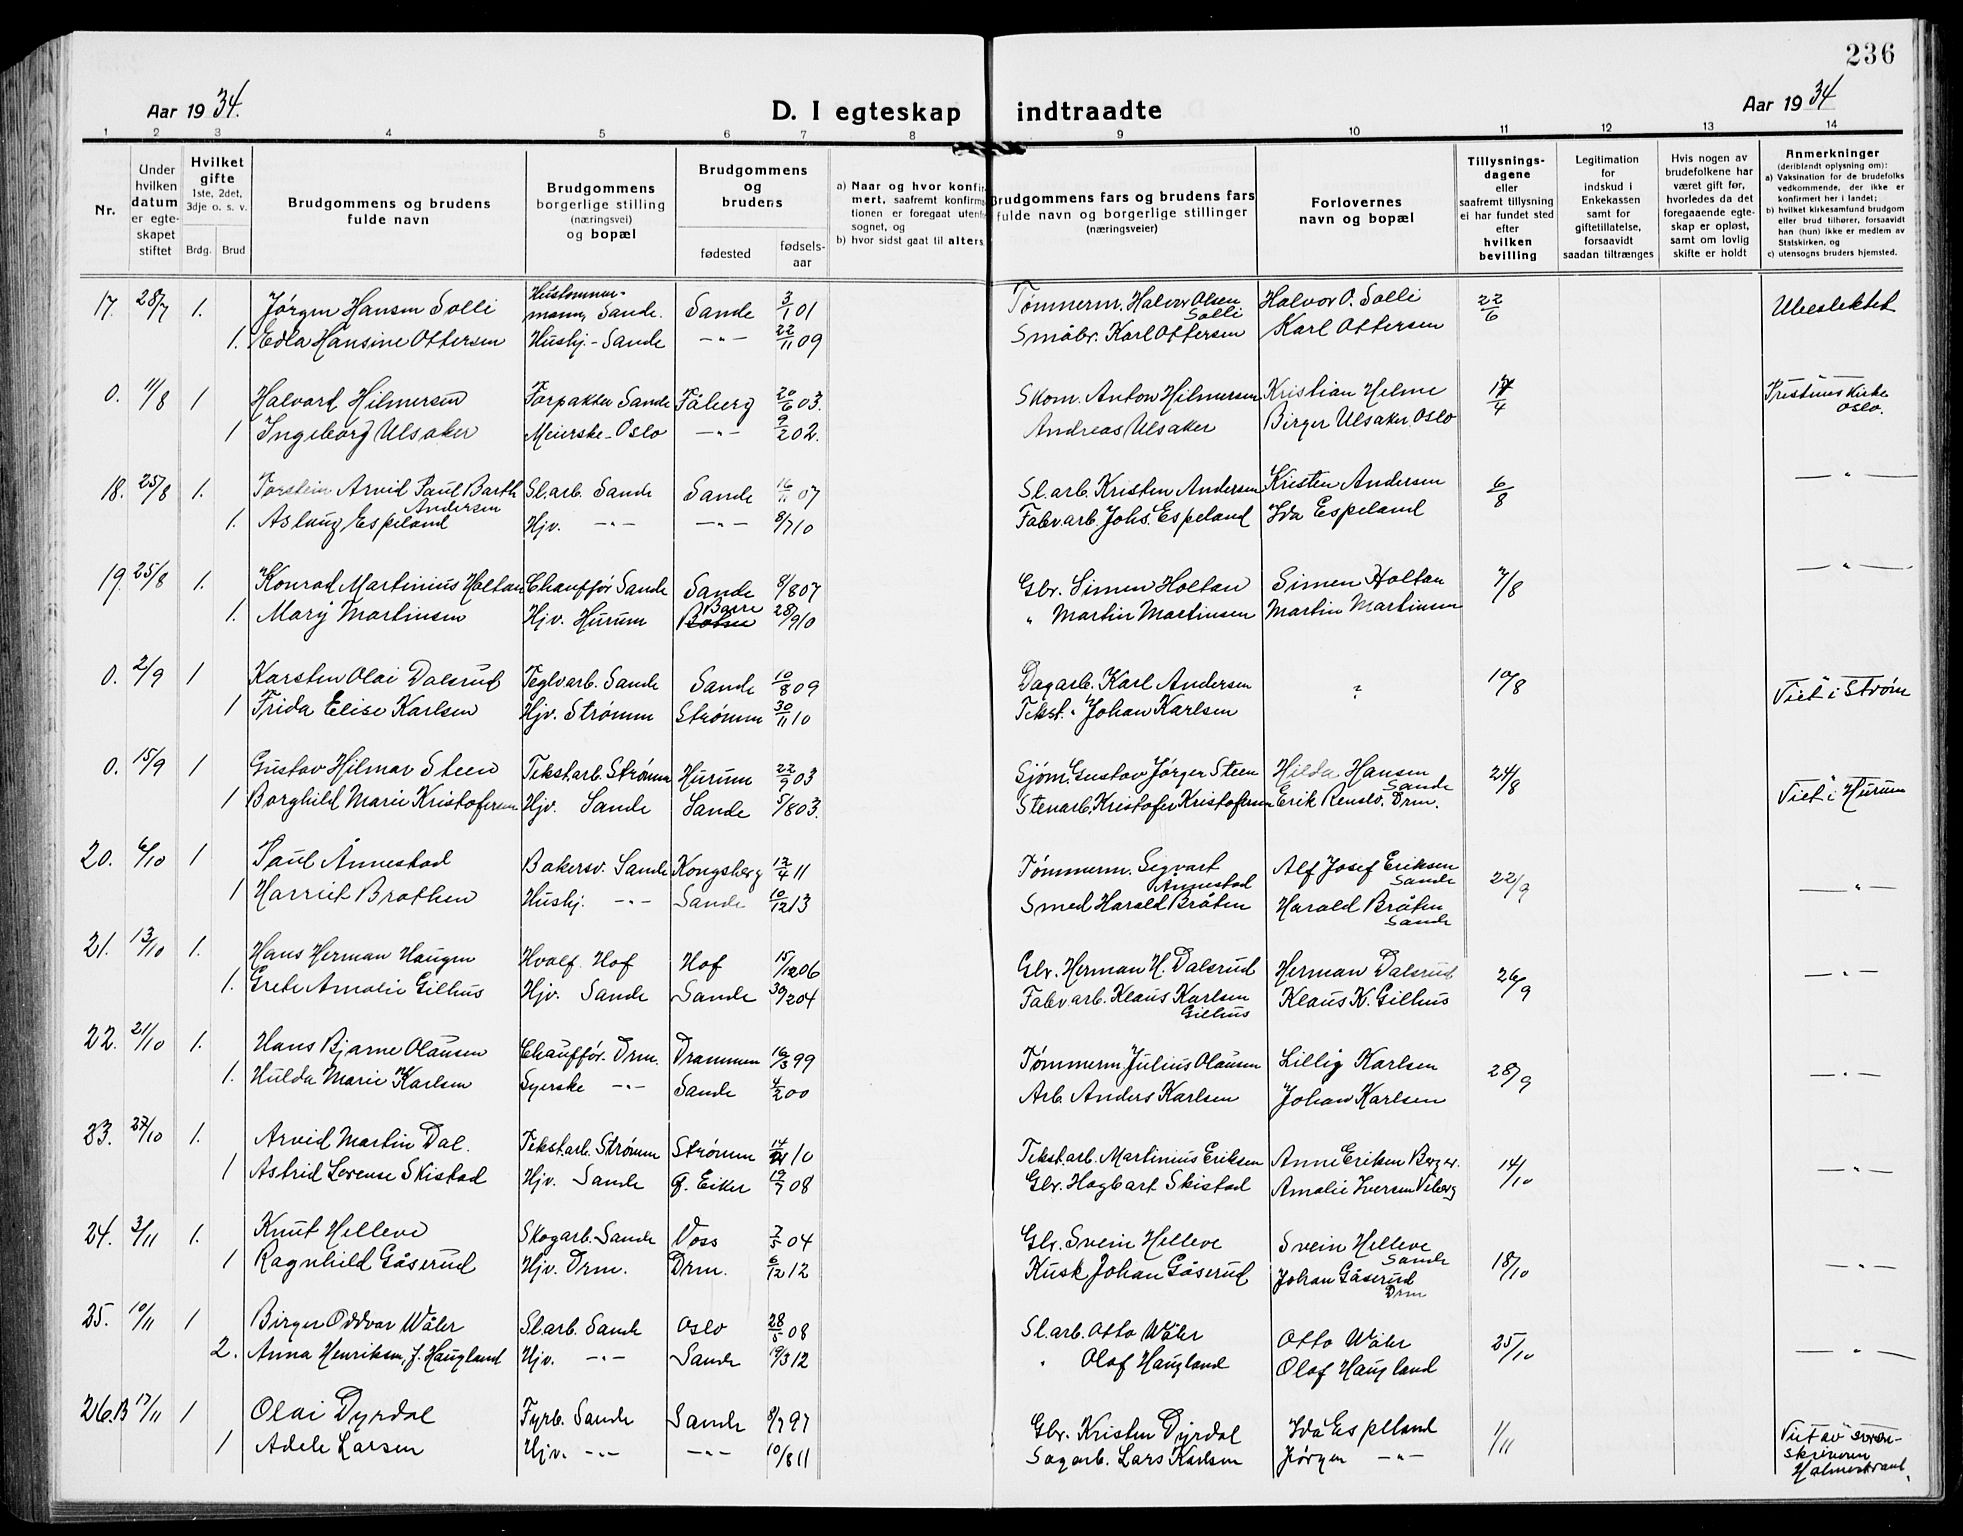 236
Aar 1934.
D. I egteskap indtraadte
Aar 1934
1 2 3 4 5 6 7 8 9 10 11 12 13 14
Nr.
Under hvilken datum er egteskapet stiftet
Hvilket gifte 1ste, 2det, 3dje o. s. v.
Brdg. Brud
Brudgommens og brudens fulde navn
Brudgommens borgerlige stilling (næringsvei) og bopæl
Brudgommens og brudens
fødested
fødsels-aar
a) Naar og hvor konfirmert, saafremt konfirmationen er foregaat utenfor sognet, og
b) hvor sidst gaat til alters
Brudgommens fars og brudens fars fulde navn og borgerlige stillinger (næringsveier)
Forlovernes navn og bopæl
Tillysningsdagene eller saafremt tillysning ei har fundet sted efter hvilken bevilling
Legitimation for indskud i Enkekassen samt for giftetillatelse, forsaavidt saadan tiltrænges
Hvis nogen av brudefolkene har været gift før, hvorledes da det foregaaende egteskap er opløst, samt om lovlig skifte er holdt
Anmerkninger (deriblandt oplysning om):
a) Vaksination for de brudefolks vedkommende, der ikke er konfirmert her i landet;
b) hvilket kirkesamfund brudgom eller brud tilhører, forsaavidt han (hun) ikke er medlem av Statskirken, og
c) utensogns bruders hjemsted.
17. 28/7 1. Jørgen Hansen Solli Sande. Sande 3/1 01 Tømmerm. Halvor Olsen Solli Halvor O. Solli 22/6 Ubeslektet
1. Edla Hansine Ottersen Hushj. - Sande -"- 22/11 09 Småbr. Karl Ottersen Karl Ottersen
0. 11/8 1 Halvard Hilmersen Forpakter Sande Fåberg 20/6 03. Skom. Anton Hilmersen Kristian Helme Kirke Oslo.
1 Ingeborg Ulsaker Meierske - Oslo -"- 9/2 02. Andreas Ulsaker Birger Ulsaker, Oslo
18. 25/8 1. Torstein Arvid Paul Barth Andersen Sl.arb. Sande Sande 16/11 07 Sl.arb. Kristen Andersen Kristen Andersen 6/8 -"-
1. Aslaug Espeland Hjv. -"- -"- 8/7 10 Fabv.arb. Johs. Espeland Ida Espeland
19. 25/8 1. Konrad Martinius Holtan Chauffør Sande Sande 8/8 07 Gbr. Simen Holtan Simen Holtan 7/8 -"-
1. Mary Martinsen Hjv. Hurum Borre 28/9 10 " Martin Martinsen Martin Martinsen
0. 2/9 1 Karsten Olai Dalsrud Teglv.arb. Sande Sande 10/8 09 Dagarb. Karl Andersen ? 10/8 Viet i Strøm
1 Frida Elise Karlsen Hjv. Strømm Strømm 30/11 10 Tekst. " Johan Karlsen
0. 15/9 1 Gustav Hilmar Steen Tekst.arb. Strømm Hurum 22/9 03 Sjøm. Gustav Jørger Steen Hilda Hansen Sande 24/8 Viet i Hurum
1 Borghild Marie Kristofersen Hjv. Sande Sande 5/8 03. Stenarb. Kristofer Kristofersen Erik Renslo. Drm.
20. 6/10 1 Paul Ånnestad Bakersv. Sande Kongsberg 12/4 11 Tømmerm. Sigvart Ånnestad Alf Josef Eriksen Sande 22/9 -"-
1 Harriet Brathen Hushj. -"- Sande 10/12 13 Smed Harald Bråten Harald Bråten Sande
21. 13/10 1. Hans Herman Haugen Hvalf. Hof Hof 15/12 06 Gbr. Herman H. Dalsrud Herman Dalsrud 26/9 -"-
1. Grete Amalie Gilhus Hjv. Sande Sande 30/2 04 Fabv.arb. Klaus Karlsen Gilhus Klaus K. Gilhus
22. 21/10 1. Hans Bjarne Olausen Chauffør. Drm. Drammen 16/3 99 Tømmerm. Julius Olausen Lillig Karlsen 28/9 -"-
1. Hulda Marie Karlsen Syerske -"- Sande 4/2 00 Arb. Anders Karlsen Johan Karlsen
23. 27/10 1. Arvid Martin Dal. Tekst.arb. Strømm Strømm 10 Tekst.arb. Martinius Eriksen Anne Eriksen Berger. 14/10 -"-
1 Astrid Lovense Skistad Hjv. Sande Ø. Eiker 19/7 08 Gbr. Hagbart Skistad Amalie Iversen Viberg
24. 3/11 1. Knut Helleve Skogarb. Sande Voss 7/5 04 Gbr. Svein Helleve Svein Helleve Sande 18/10 -"-
1 Ragnhild Gåserud Hjv. Drm. Drm. 6/12 12 Kusk Johan Gåserud Johan Gåserud Drm
25. 10/11 1 Birger Oddvar Wåler Sl.arb. Sande Oslo 28/5 08 Sl.arb. Otto Wåler Otto Wåler 25/10 -"-
2. Anna Henriksen, f. Haugland Hjv. -"- Sande 19/3 12 " Olaf Haugland Olaf Haugland
26.B 17/11 1 Olai Dyrdal Fyrb. Sande Sande 8/7 97 Gbr. Kristen Dyrdal Ida Espeland 1/11 Viet av soren-
skriveren
Holmestrand.
1 Adele Larsen Hjv. -"- -"- 10/8 11 Sagarb. Lars Karlsen Jørgen -"-